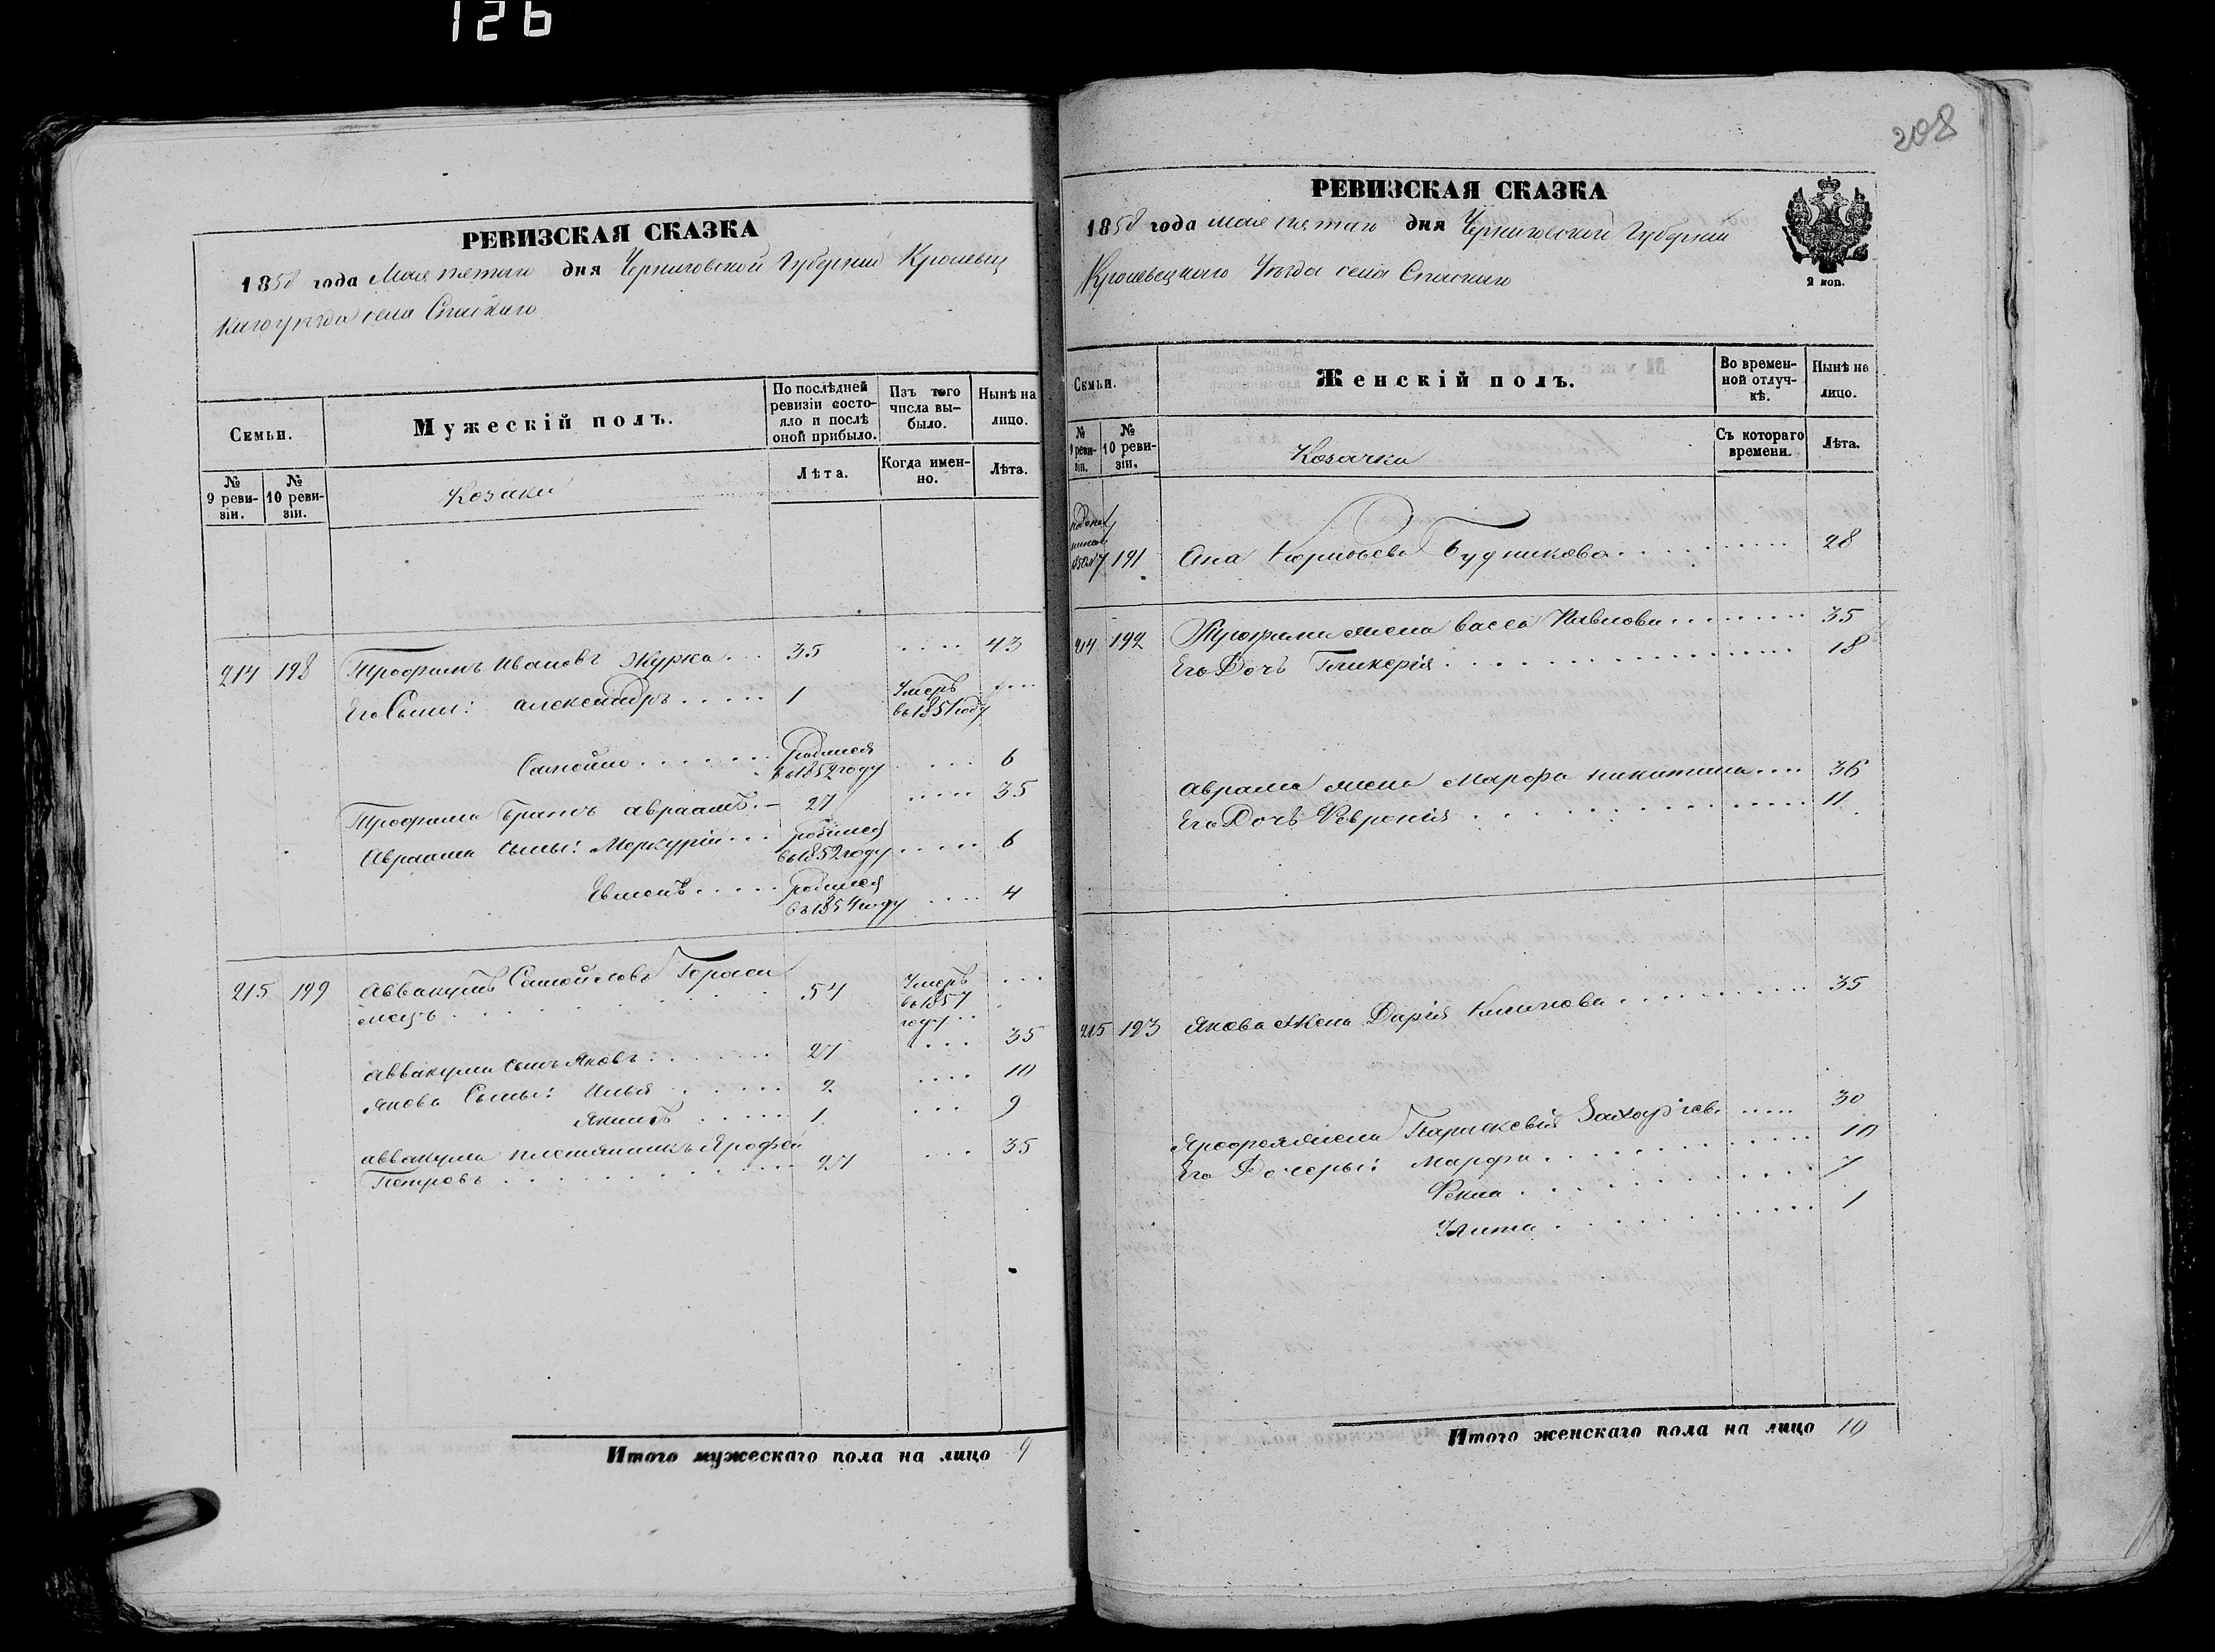 126
208
РЕВИЗСКАЯ СКАЗКА
1858 года Мая пятаго дня Черниговской Губерніи Кролевец
каго уезда села Спаскаго
Семьи.
Мужескій полъ.
По послѣдней ревизіи состояло и послѣ оной прибыло.
Изъ того числа выбыло.
Нынѣ на лицо.
№ 9 ревизіи.
№ 10 ревизіи.
Козаки
Лѣта.
Когда именно.
Лѣта.
214 198 Трофимъ Ивановъ Журка . . . 35 . . . . 43
Его Сыны: александръ . . . . . 1 Умеръ въ 1851 году . . .
Самойло . . . . . . . родился въ 1852 году . . . . 6
Трофима братъ авраамъ . – 27 . . . . . 35
Авраама сыны: Меркурій . . . родился въ 1852 году . . . . . 6
Евменъ . . . . . родился въ 1854 году . . . . 4
215 199 Аввакумъ Самойловъ Гераси
менъ . . . . . . . . . 54 Умеръ въ 1857 году . . . . .
Аввакума сынъ Яковъ . . . . . . . 27 . . . . 35
Якова Сыны: Илья . . . . . . 2 . . . . 10
Якимъ . . . . . 1 . . . 9
аввакума племянникъ Ярофей
Петровъ . . . . . . . . . . . 27 . . . 35
Итого мужескаго пола на лицо 9
РЕВИЗСКАЯ СКАЗКА
1858 года мая пятаго дня Черниговской Губерніи
Кролевецкаго Уезда села Спаскаго
2 коп.
Семьи.
Женскій полъ.
Во временной отлучкѣ.
Нынѣ на лицо.
№ 9 ревизіи.
№ 10 ревизіи.
Козачки
Съ котораго времени.
Лѣта.
191 Ана Будникова . . . . . . . . . . 28
214 192 Трофима жена васса Павлова . . . . . . . . 35
Его Дочь Гликерія . . . . . . . . . . . . . . . . . 18
аврама жена Марфа никитина . . . . 36
Его Дочь Феvронія . . . . . . . . . . . . . . . . 11
215 193 Якова Жена Дарія . . . . . . . . . . 35
Ярофея жена Параскевія . . . . . 30
Его Дочеры: Марфа . . . . . . . . . . . . . 10
Фекла . . . . . . . . . . . . . . 7
Улита . . . . . . . . . . . . . 1
Итого женскаго пола на лицо 10